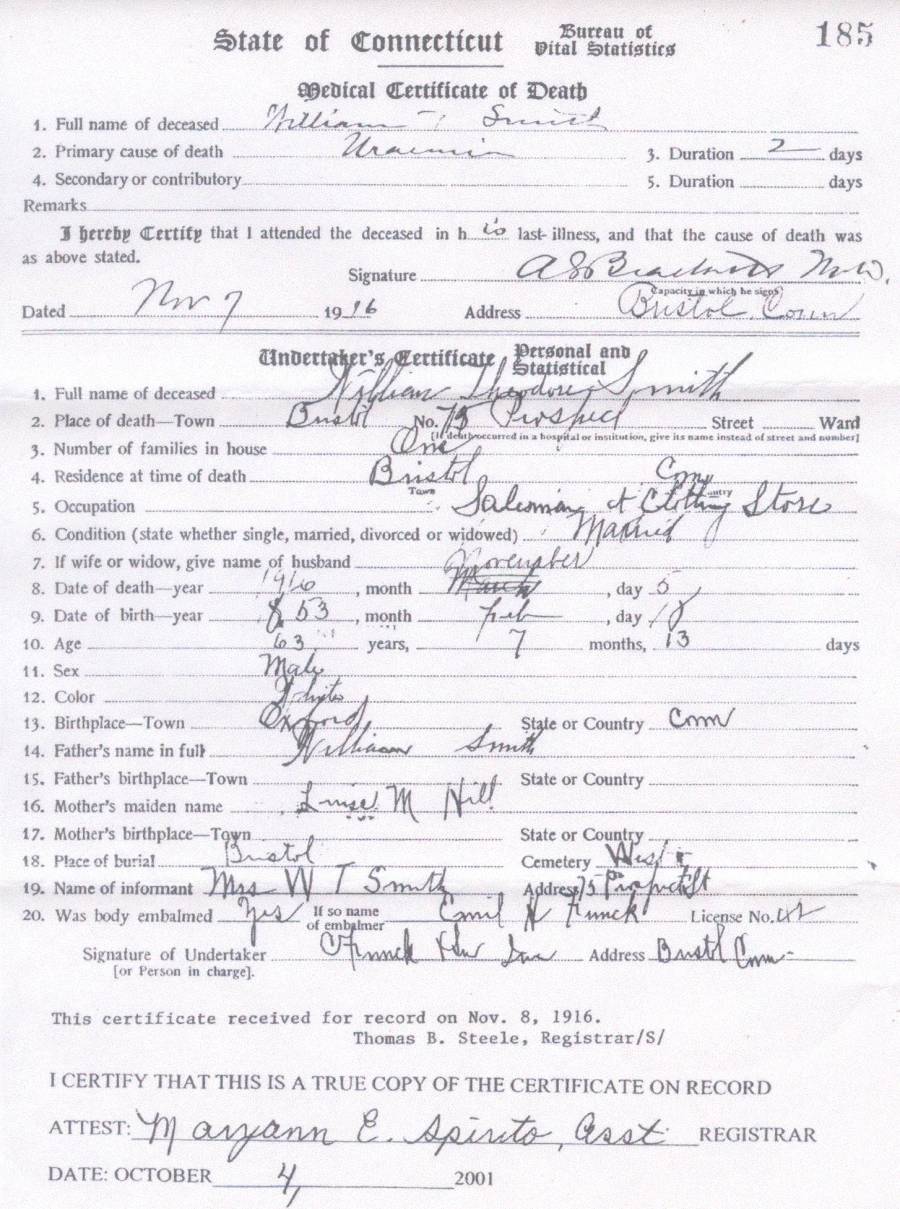 State of Connecticut Bureau of Vital Statistics 185
Medical Certificate of Death
1. Full name of deceased William T Smith
2. Primary cause of death Uraemia 3. Duration 2 days
4. Secondary or contributory 5. Duration days
Remarks
I hereby Certify that I attended the deceased in his last illness, and that the cause of death was
as above stated.
Signature M.D.
Capacity in which he signs
Dated Nov 7 1916 Address Bristol, Conn
Undertaker's Certificate Personal and Statistical
1. Full name of deceased William Theodore Smith
2. Place of death—Town Bristol No. 75 Prospect Street Ward
[If death occurred in a hospital or institution, give its name instead of street and number]
3. Number of families in house One
4. Residence at time of death Bristol Conn
Town Country
5. Occupation Salesman at Clothing Store
6. Condition (state whether single, married, divorced or widowed) Married
7. If wife or widow, give name of husband
8. Date of death—year 1916, month November March, day 5
9. Date of birth—year 1853, month Feb, day 18
10. Age 63 years, 7 months, 13 days
11. Sex Male
12. Color White
13. Birthplace—Town Oxford State or Country Conn
14. Father's name in full William Smith
15. Father's birthplace—Town State or Country
16. Mother's maiden name M Hill
17. Mother's birthplace—Town State or Country
18. Place of burial Bristol Cemetery West
19. Name of informant Mrs W T Smith Address 75 Prospect St
20. Was body embalmed Yes If so name of embalmer Emil H Funck License No.
Signature of Undertaker C Funck Address Bristol Conn
[or Person in charge].
This certificate received for record on Nov. 8, 1916.
Thomas B. Steele, Registrar/S/
I CERTIFY THAT THIS IS A TRUE COPY OF THE CERTIFICATE ON RECORD
ATTEST: Maryann E. Spirito, Asst. REGISTRAR
DATE: OCTOBER 4, 2001